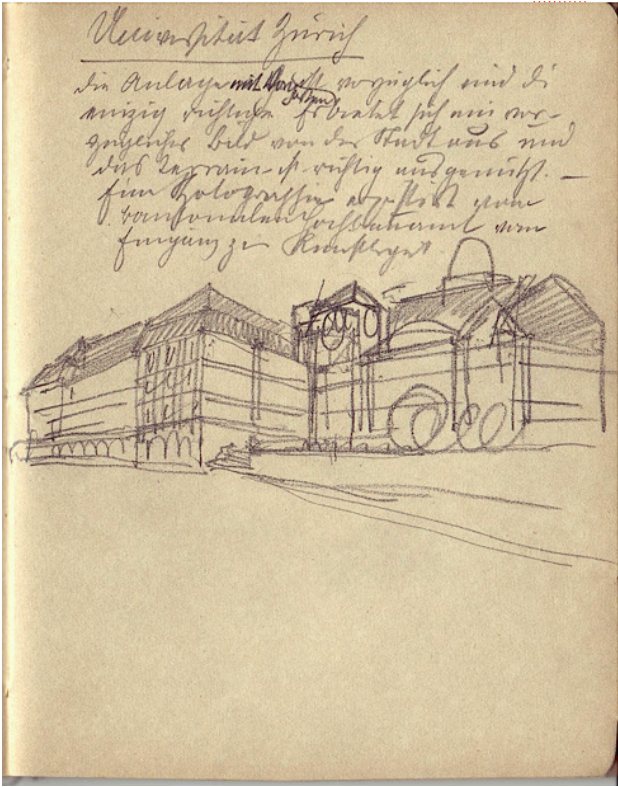 Universität Zürich
die Anlage mit vorzüglich und di
einzig richtige Es bietet sich ein vor-
zügliches Bild von der Stadt aus und
das Terrain ist richtig ausgenützt. —
Eine vom
kantonalen Hochbauamt vom
Eingang zu